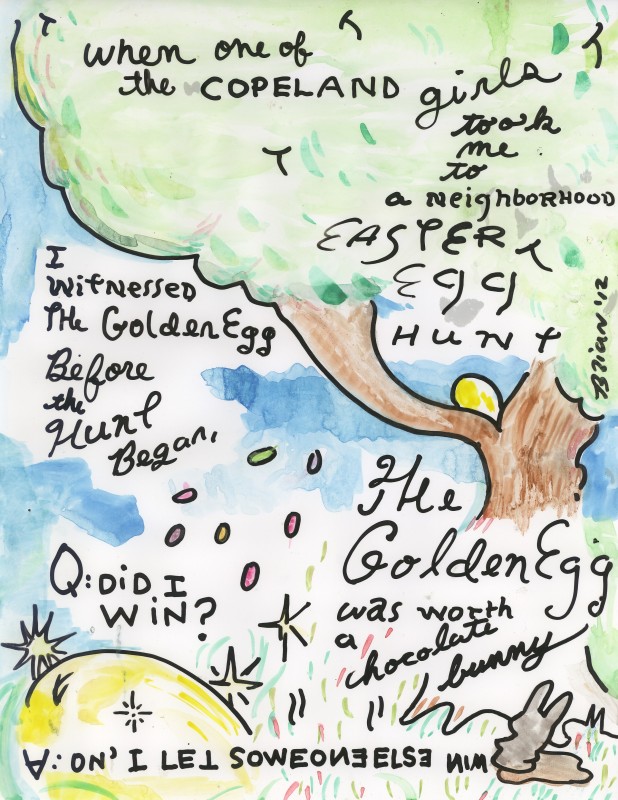 when one of
the COPELAND girls
took
me
to
a NeighBORHOOD
EASTER
EGG
HUNT
I
WitNessed
THe GoldenEgg
Before
the
Hunt
Began,
Brian '12
THe
GoldenEgg
was worth
a chocolate
bunny
Q: DiD I
WiN?
A: NO, I LET SOMEONE ELSE WIN